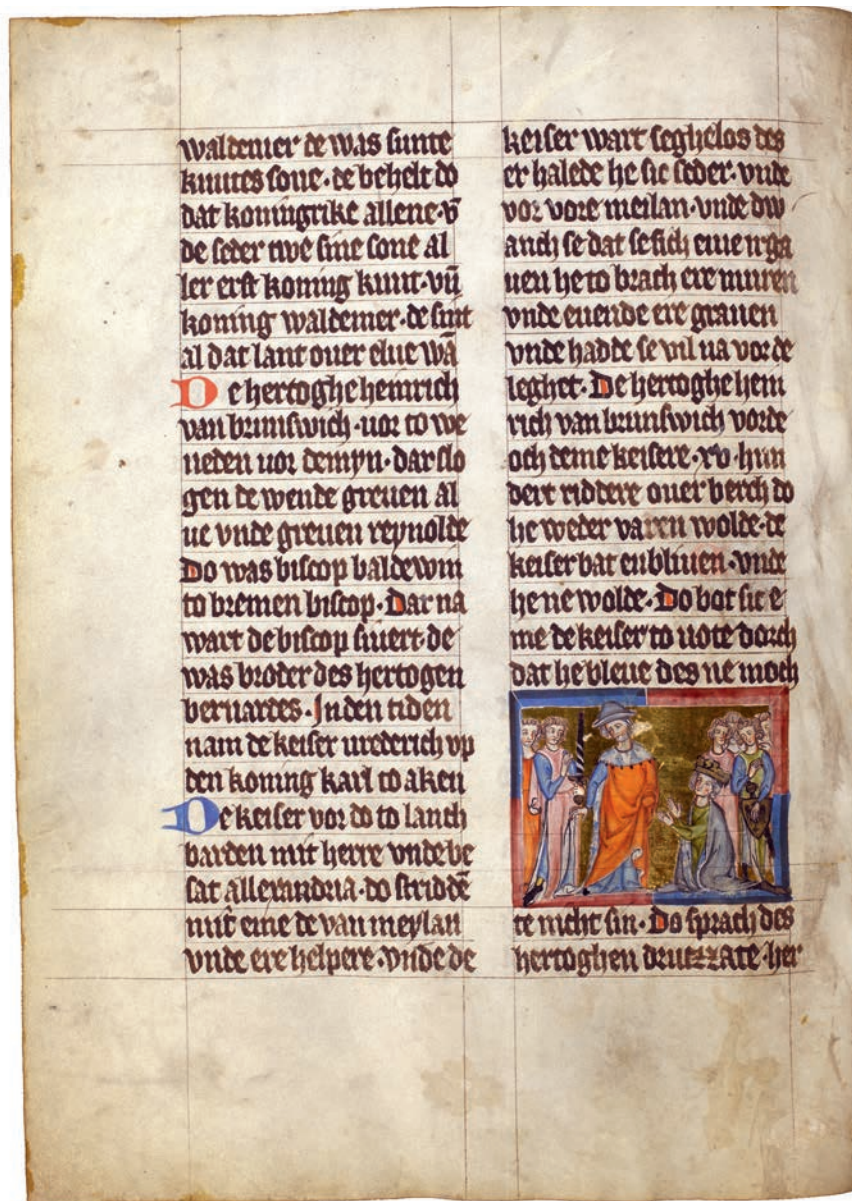 waldemer de was sunte
knutes sone · de behelt do
dat koningrike allene · vn̄
de seder twe sine sone al
ler erst koning knut · vn̄
koning waldemer · de sint
al dat lant ouer elue wā
De hertoghe heinrich
van brunswich · uor to we
neden uor demyn · dar slo
gen de wende greuen al
ue vnde greuen reynolde
Do was biscop baldewin
to bremen biscop · Dar na
wart de biscop siuert · de
was broder des hertogen
bernardes · In den tiden
nam de keiser urederich vp
den koning karl to aken
De keiser vor do to lanch
barden mit herre vnde be
sat allexandria · do striddē
mit eme de van meylan
vnde ere helpere · vnde de
keiser wart seghelos des
er halede he sic seder · vnde
vor vore meilan · vnde dw
anch se dat se sich eme irga
uen he to brach ere muren
vnde euende ere grauen
vnde hadde se vil na vorde
leghet · De hertoghe hein
rich van brunswich vorde
och deme keisere · xv · hun
dert riddere ouer berch do
he weder varen wolde · de
keiser bat en bliuen · vnde
he ne wolde · Do bot sic e
me de keiser to uote dorch
dat he bleue des ne moch
te nicht sin · Do sprach des
hertoghen drutzzate · her